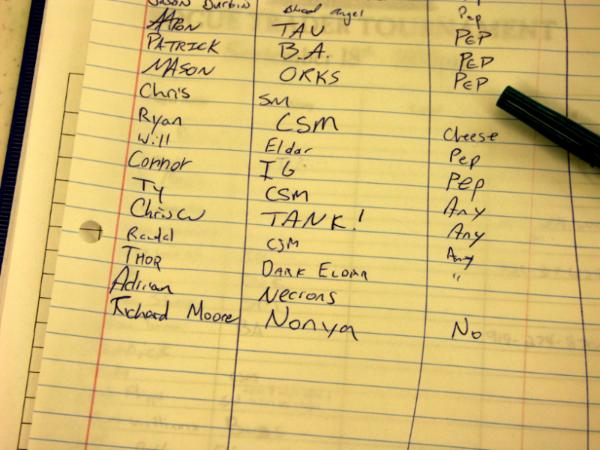 Jason Durbin Blood Angel Pep
TAU PEP
PATRICK B.A. PEP
MASON ORKS PEP
Chris SM
Ryan CSM Cheese
Will Eldar Pep
Connor IG Pep
Ty CSM Any
Chris W TANK! Any
CSM Any
THOR DARK ELDAR "
Adrian Necrons
Richard Moore Nonya No